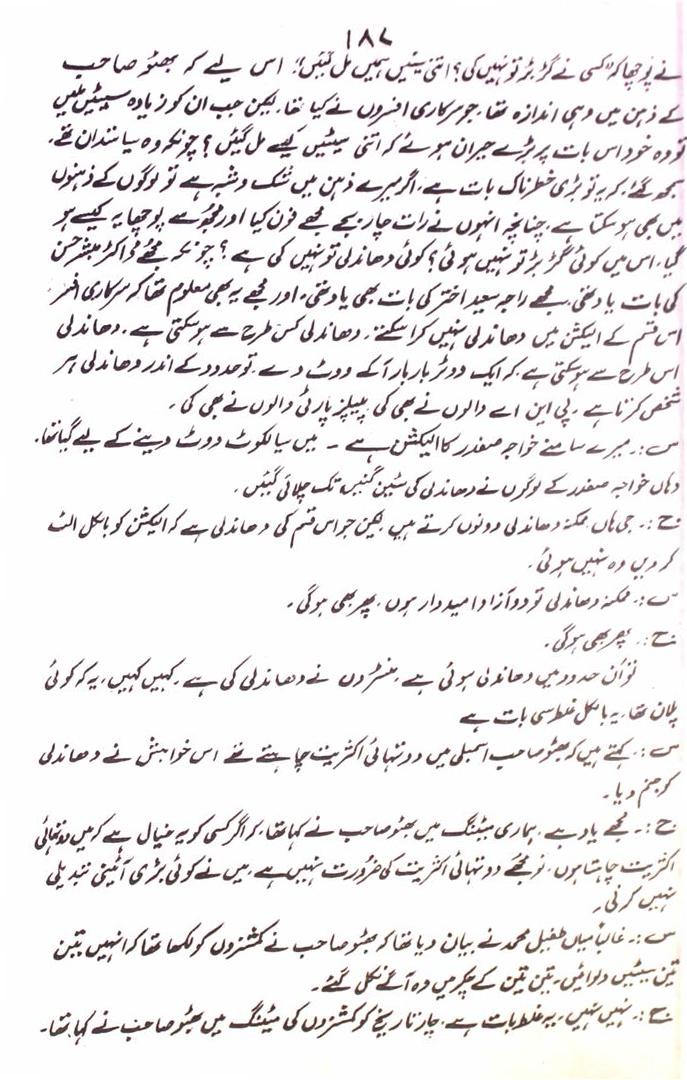 ۱۸۷
نے پوچھا کہ "کسی نے گڑ بڑ تو نہیں کی؟ اتنی سیٹیں ہمیں مل گئیں؟" اس لیے کہ بھٹو صاحب
کے ذہن میں وہی اندازہ تھا، جو سرکاری افسروں نے کیا تھا۔ لیکن جب ان کو زیادہ سیٹیں ملیں
تو وہ خود اس بات پر بڑے حیران ہوئے کہ اتنی سیٹیں کیسے مل گئیں؟ چونکہ وہ سیاستدان تھے۔
سمجھ گئے کہ یہ تو بڑی خطرناک بات ہے، اگر میرے ذہن میں شک و شبہ ہے تو لوگوں کے ذہنوں
میں بھی ہو سکتا ہے۔ چنانچہ انہوں نے رات چار بجے مجھے فون کیا اور مجھ سے پوچھا یہ کیسے ہو
گیا۔ اس میں کوئی گڑ بڑ تو نہیں ہوئی؟ کوئی دھاندلی تو نہیں کی ہے؟ چونکہ مجھے ڈاکٹر مبشر حسن
کی بات یاد تھی، مجھے راجہ سعید اختر کی بات بھی یاد تھی، اور مجھے یہ بھی معلوم تھا کہ سرکاری افسر
اس قسم کے الیکشن میں دھاندلی نہیں کرا سکتے۔ دھاندلی کس طرح سے ہو سکتی ہے۔ دھاندلی
اس طرح سے ہو سکتی ہے کہ ایک ووٹر بار بار آکے ووٹ دے۔ تو حدود کے اندر دھاندلی ہر
شخص کرتا ہے۔ پی این اے والوں نے بھی کی، پیپلز پارٹی والوں نے بھی کی۔
س:۔ میرے سامنے خواجہ صفدر کا الیکشن ہے ۔ میں سیالکوٹ ووٹ دینے کے لیے گیا تھا۔
وہاں خواجہ صفدر کے لوگوں نے دھاندلی کی سٹین گنیں تک چلائی گئیں۔
ج:۔ جی ہاں ممکنہ دھاندلی دونوں کرتے ہیں لیکن جو اس قسم کی دھاندلی ہے کہ الیکشن کو بالکل الٹ
کر دیں وہ نہیں ہوئی۔
س:۔ ممکنہ دھاندلی تو دو آزاد امیدوار ہوں، پھر بھی ہوگی۔
ج:۔ پھر بھی ہوگی۔
تو اُن حدود میں دھاندلی ہوئی ہے، منسٹروں نے دھاندلی کی ہے، کہیں کہیں، یہ کہ کوئی
پلان تھا، یہ بالکل غلط سی بات ہے
س:۔ کہتے ہیں کہ بھٹو صاحب اسمبلی میں دو تہائی اکثریت چاہتے تھے اس خواہش نے دھاندلی
کو جنم دیا۔
ج:۔ مجھے یاد ہے، ہماری میٹنگ میں بھٹو صاحب نے کہا تھا، کہ اگر کسی کو یہ خیال ہے کہ میں دو تہائی
اکثریت چاہتا ہوں، تو مجھے دو تہائی اکثریت کی ضرورت نہیں ہے، میں نے کوئی بڑی آئینی تبدیلی
نہیں کرنی۔
س:۔ غالباً میاں طفیل محمد نے بیان دیا تھا کہ بھٹو صاحب نے کمشنروں کو لکھا تھا کہ انہیں تین
تین سیٹیں دلوائیں۔ تین تین کے چکر میں وہ آگے نکل گئے۔
ج:۔ نہیں نہیں، یہ غلط بات ہے، چار تاریخ کو کمشنروں کی میٹنگ میں بھٹو صاحب نے کہا تھا۔